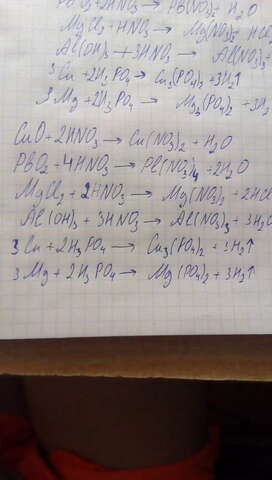 PbO₂+HNO₃ → Pb(NO₃)₂ H₂O
MgCl₂+HNO₃ → Mg(NO₃)₂+ HCl
Al(OH)₃ + 3HNO₃ → Al(NO₃)₃+
3Cu +2H₃PO₄ → Cu₃(PO₄)₂ +3H₂↑
3Mg+2H₃PO₄ → Mg₃(PO₄)₂ +3H₂
CuO+2HNO₃ → Cu(NO₃)₂ + H₂O
PbO₂ +4HNO₃ → Pb(NO₃)₄ +2H₂O
MgCl₂ + 2HNO₃ → Mg(NO₃)₂ +2HCl
Al(OH)₃ + 3HNO₃ → Al(NO₃)₃ +3H₂O
3Cu +2H₃PO₄ → Cu₃(PO₄)₂ +3H₂↑
3Mg+2H₃PO₄ → Mg(PO₄)₂ +3H₂↑